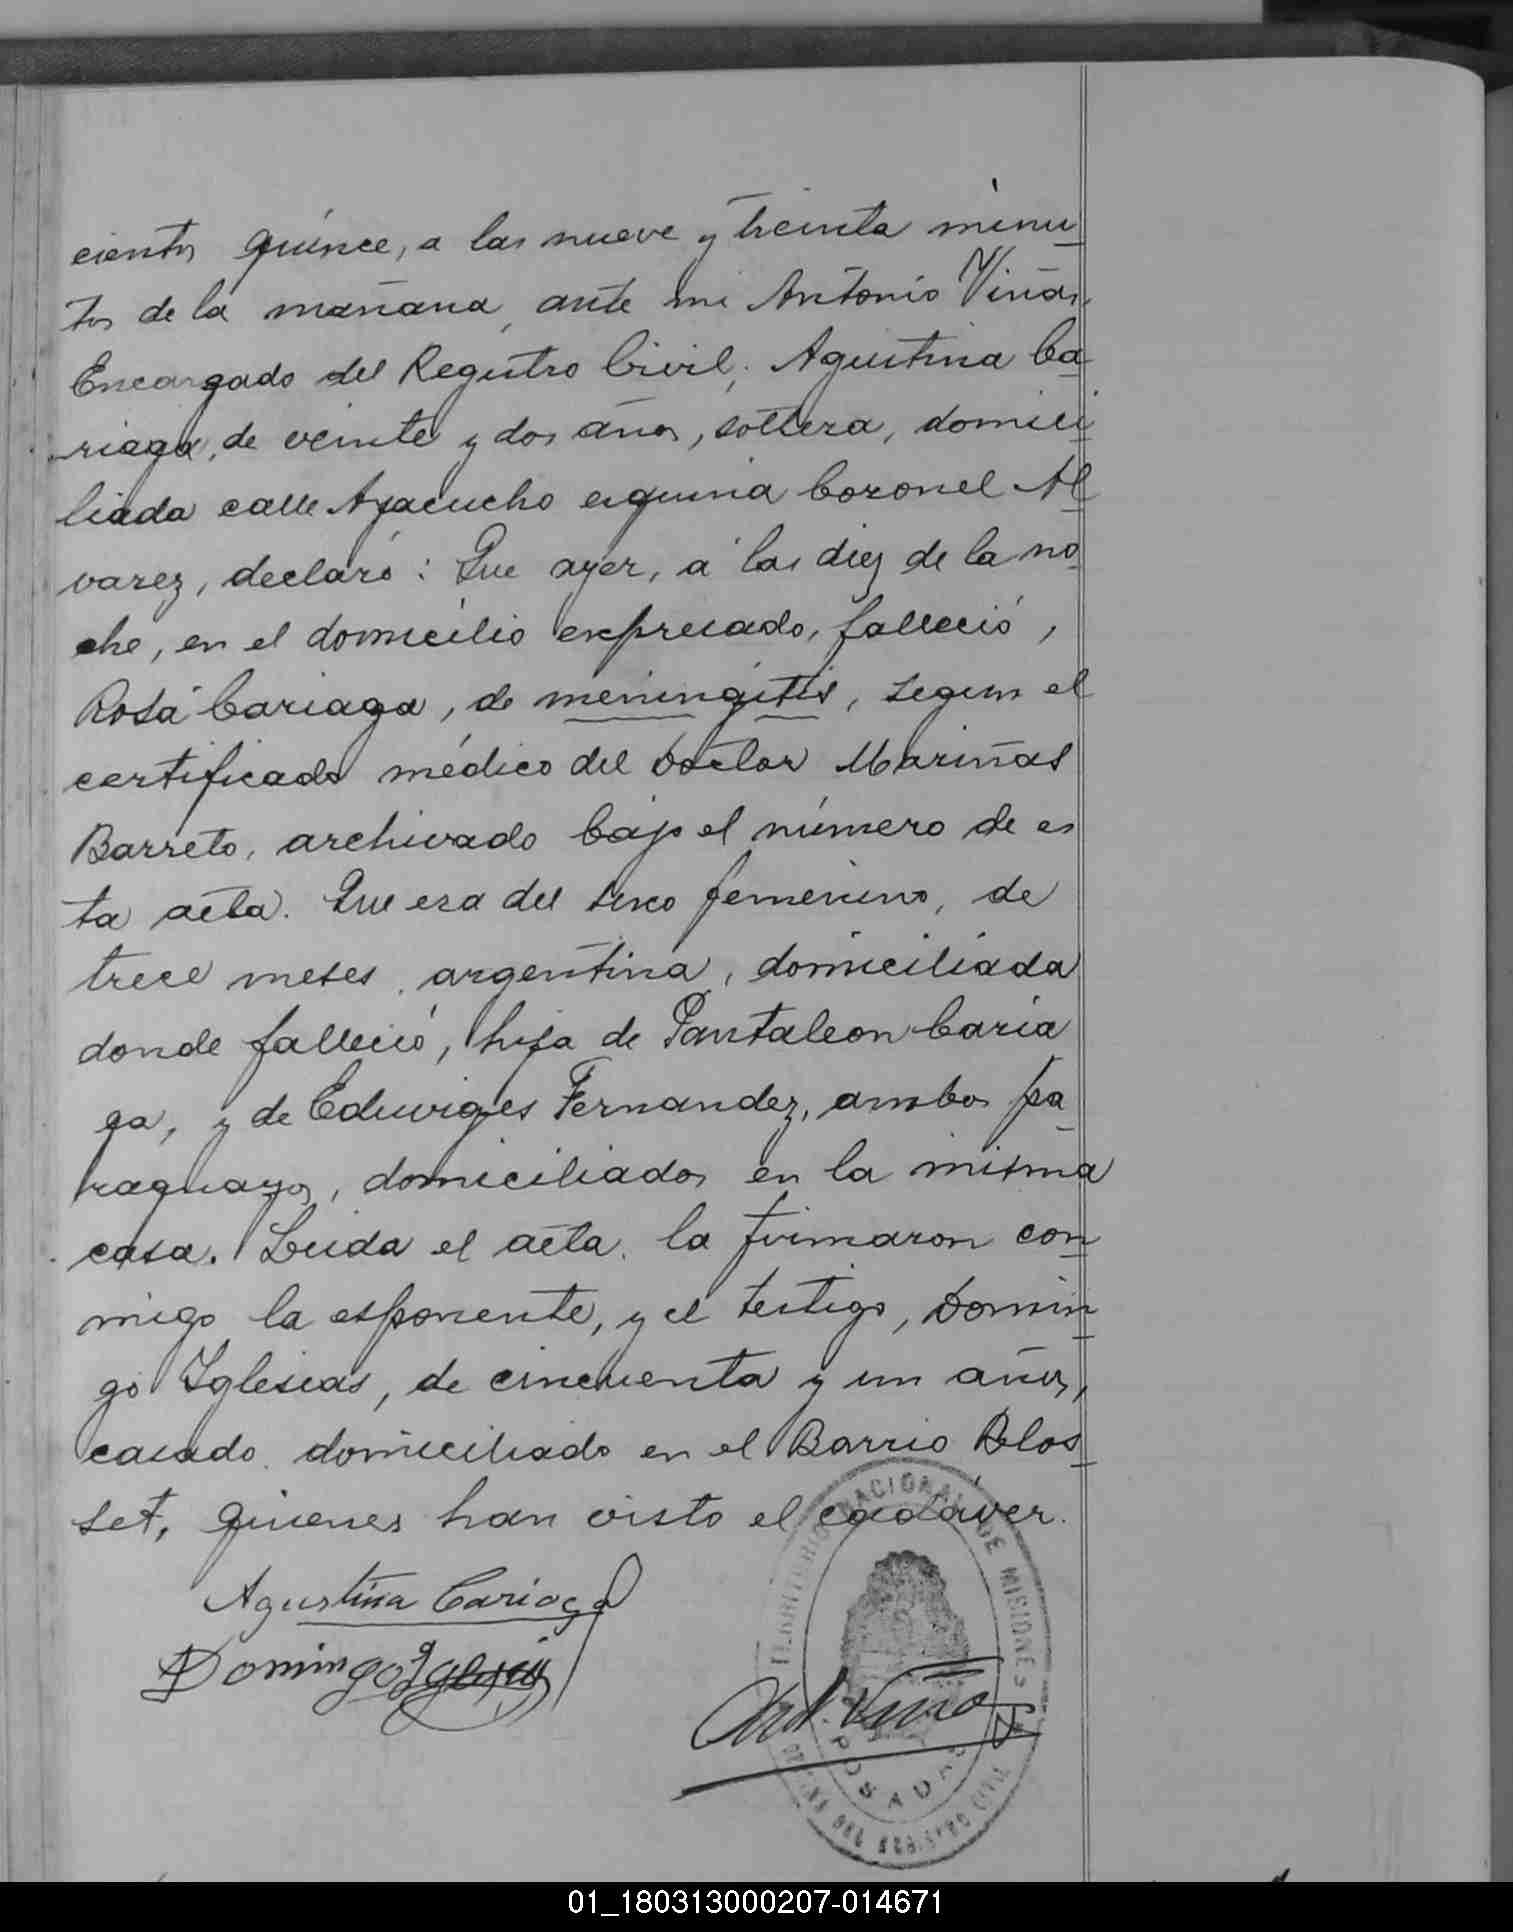 cientos quince, a las nueve y treinta minu-
tos de la mañana, ante mi Antonio Viñas,
Encargado del Registro Civil; Agustina Ca-
riaga, de veinte y dos años, soltera, domici-
liada calle Ayacucho esquina Coronel Al-
varez, declaró: Que ayer, á las diez de la no-
che, en el domicilio expresado, falleció,
Rosa Cariaga, de meningitis, segun el
certificado médico del Doctor Mariñas
Barreto, archivado bajo el número de es
ta acta. Que era del sexo femenino, de
trece meses, argentina, domiciliada
donde falleció, hija de Pantaleon Caria
ga, y de Eduviges Fernandez, ambos pa-
raguayos, domiciliados en la misma
casa. Leida el acta, la firmaron con-
migo la esponente, y el testigo, Domin-
go Iglesias, de cincuenta y un años,
casado, domiciliado en el Barrio Blos-
set, quienes han visto el cadáver.
Agustina Cariaga
Domingo Iglesias
Ant. Viñas
TERRITORIO NACIONAL DE MISIONES
POSADAS
OFICINA DEL REGISTRO CIVIL
01_180313000207-014671